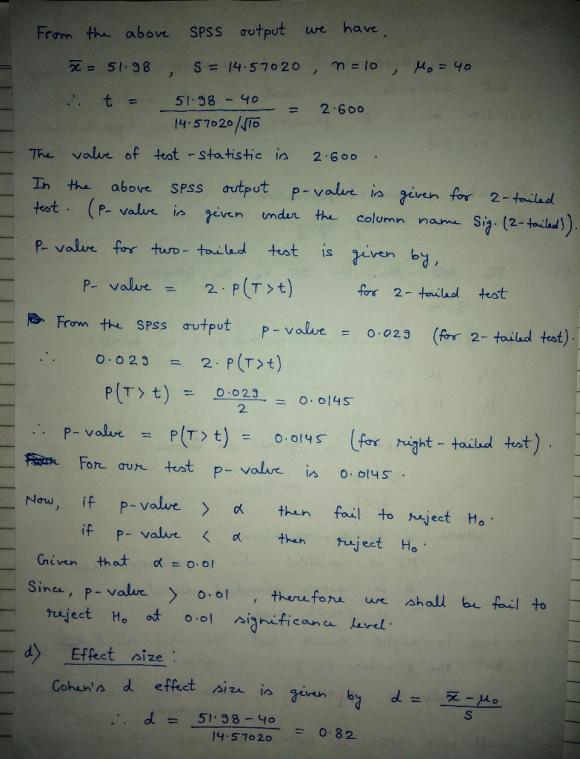 From the above SPSS output we have,
x̄ = 51.98 , S = 14.57020 , n = 10 , μ₀ = 40
∴ t = (51.98 - 40) / (14.57020/√10) = 2.600
The value of test-statistic is 2.600 .
In the above SPSS output p-value is given for 2-tailed
test. (P-value is given under the column name Sig. (2-tailed)).
P-value for two-tailed test is given by,
P-value = 2. P(T>t) for 2-tailed test
From the SPSS output p-value = 0.029 (for 2-tailed test).
∴ 0.029 = 2. P(T>t)
P(T>t) = 0.029 / 2 = 0.0145
∴ p-value = P(T>t) = 0.0145 (for right-tailed test).
For our test p-value is 0.0145 .
Now, if p-value > α then fail to reject H₀.
if p-value < α then reject H₀.
Given that α = 0.01
Since, p-value > 0.01 , therefore we shall be fail to
reject H₀ at 0.01 significance level.
d) Effect size :
Cohen's d effect size is given by d = (x̄ - μ₀) / S
∴ d = (51.98 - 40) / 14.57020 = 0.82